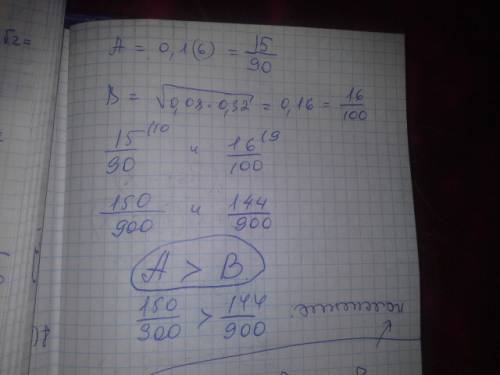 A = 0,1(6) = 15/90
B = √0,08·0,32 = 0,16 = 16/100
15/90 (10 и 16/100 (9
150/900 и 144/900
A > B
150/900 > 144/900
пояснение: